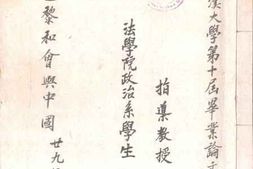 漢大學第十屆畢業論文
指導教授
法學院政治系學生
黎和會與中國 廿九